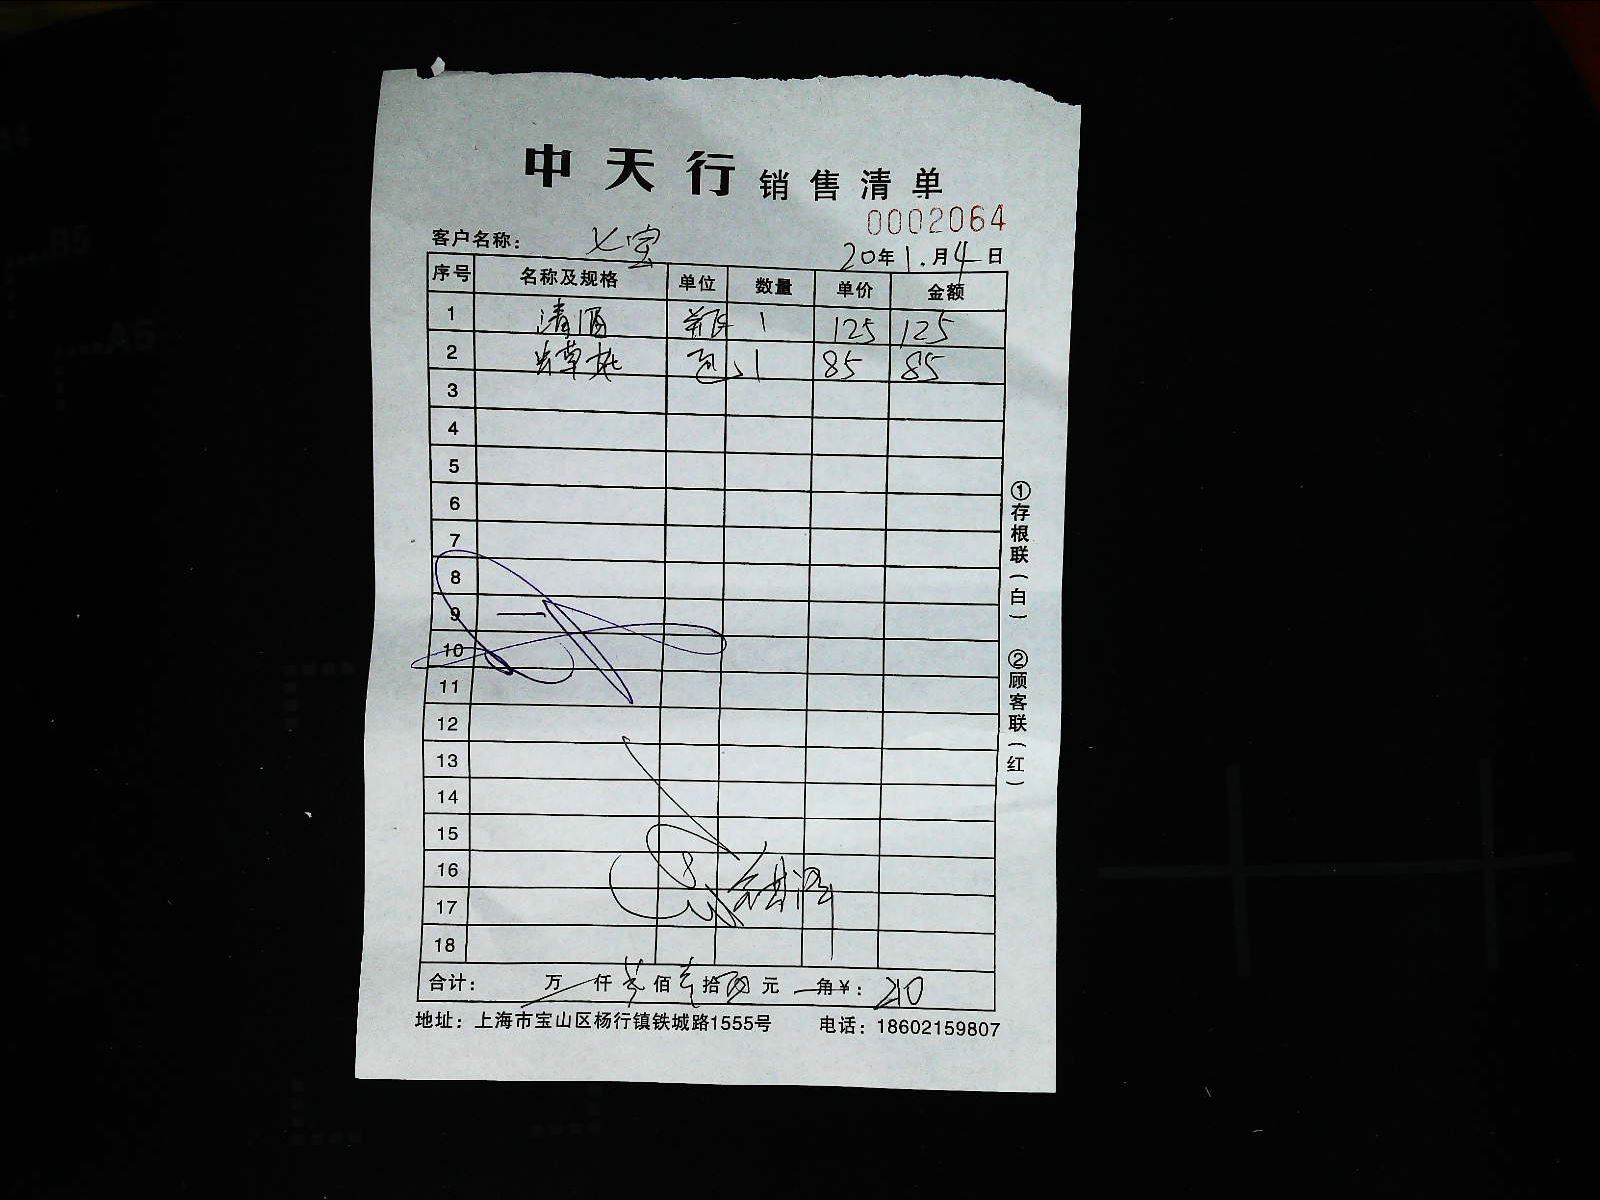 中天行 销售清单
0002064
客户名称： 七宝
20年1.月4日
序号 名称及规格 单位 数量 单价 金额
1 清酒 瓶 1 125 125
2 草 包 1 85 85
3
4
5
6
7
8
9
10
11
12
13
14
15
16
17
18
合计： 万 仟 贰 佰 壹 拾 元 角￥： 210
地址：上海市宝山区杨行镇铁城路1555号 电话：18602159807
①存根联（白） ②顾客联（红）